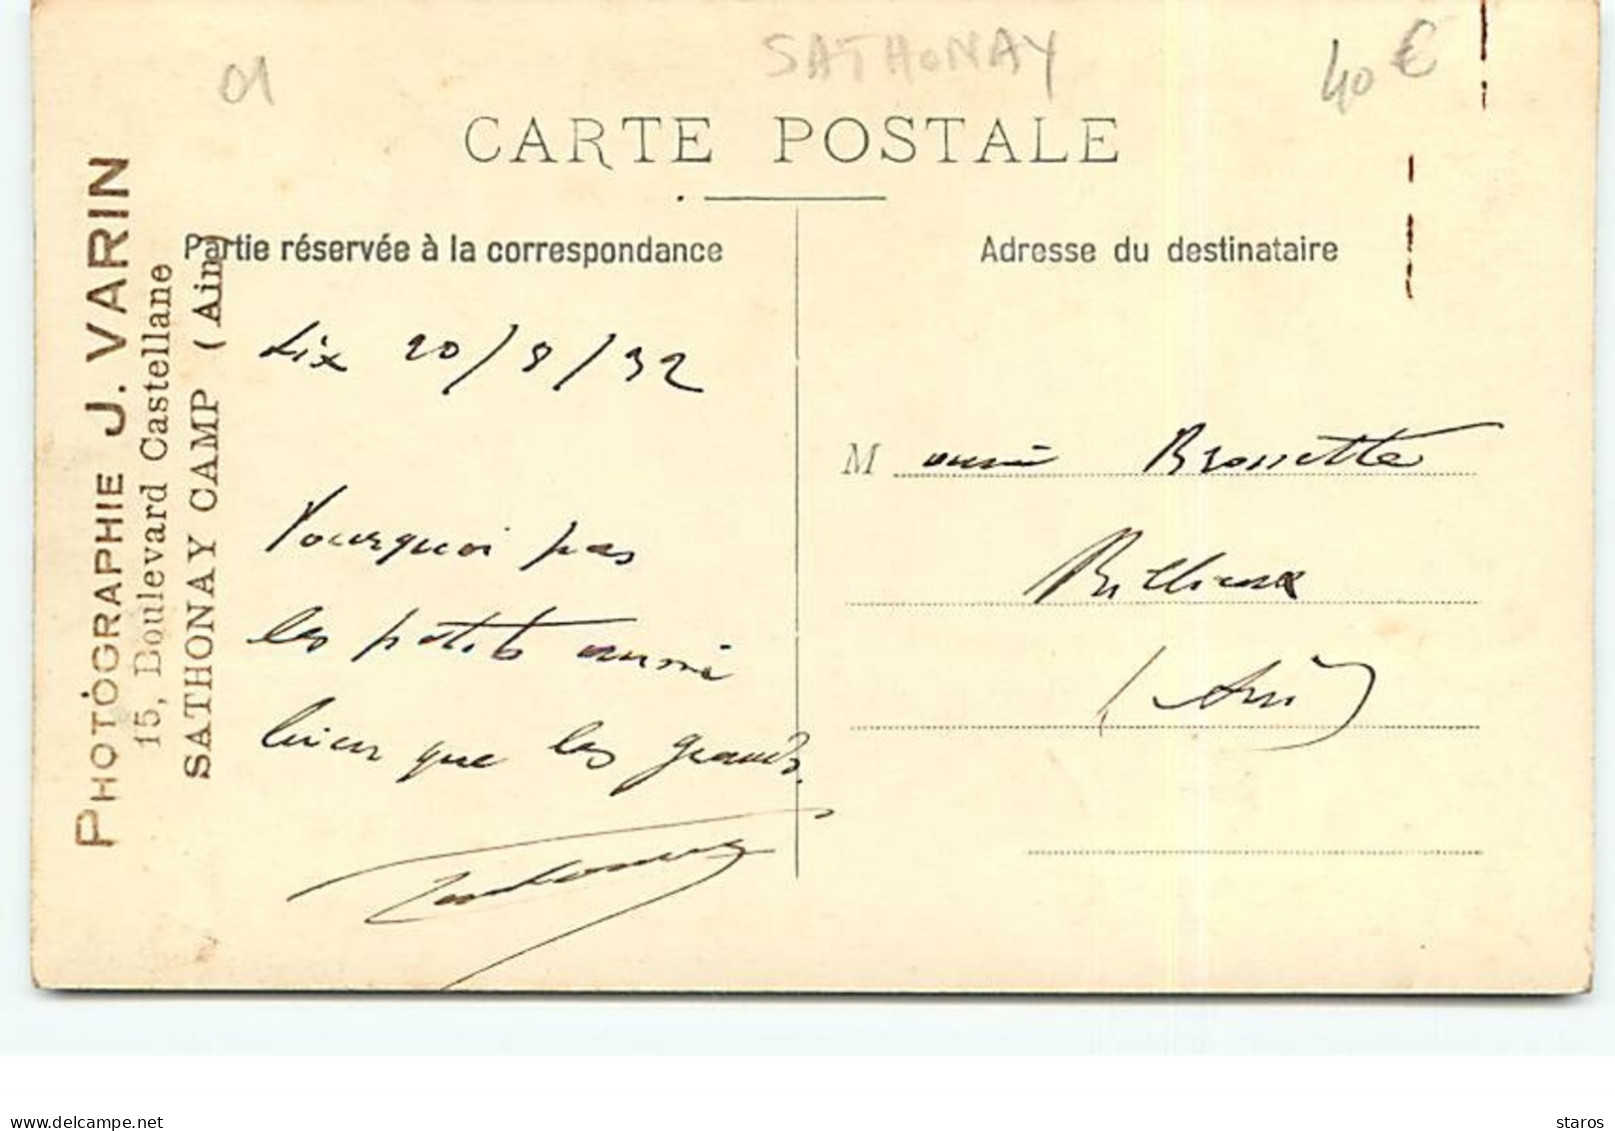 01
SATHONAY
40 €
CARTE POSTALE
PHOTOGRAPHIE J. VARIN
15, Boulevard Castellane
SATHONAY CAMP (Ain)
Partie réservée à la correspondance
20/8/32
Pourquoi pas
les petits aussi
bien que les grands.
Adresse du destinataire
M onsieur Brossette
Billieux
(Ain)
www.delcampe.net
staros